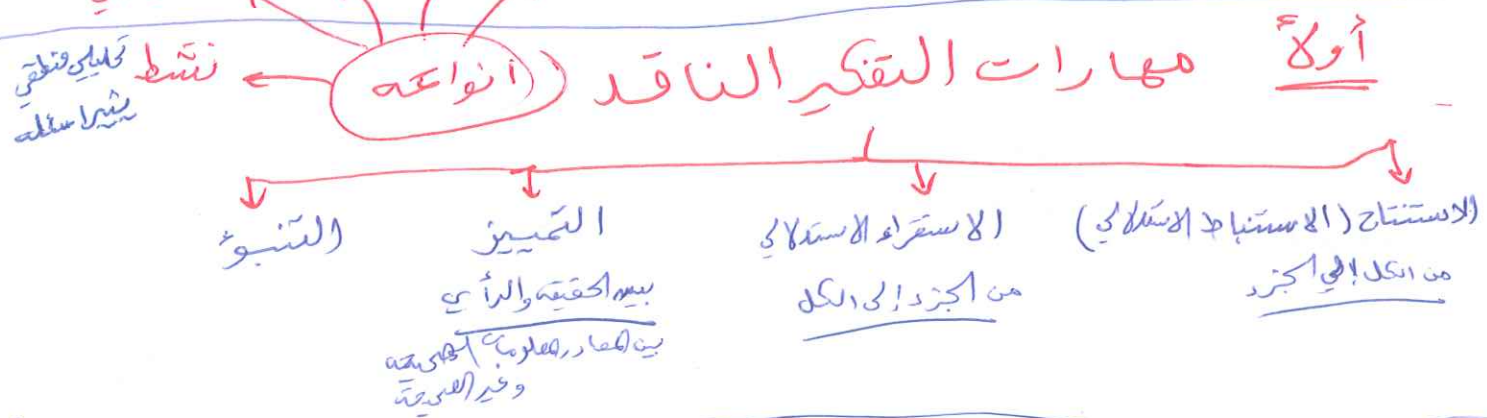 أولاً مهارات التفكير الناقد (أنواعه) ← نشط
تحليلي منطقي
يثير اسئله
الاستنتاج (الاستنباط الاستدلالي)
من الكل إلى الجزء
الاستقراء الاستدلالي
من الجزء إلى الكل
التمييز
بين الحقيقه والرأي
بين المصادر معلومات الصحيحه
وغير الصحيحة
التنبوء